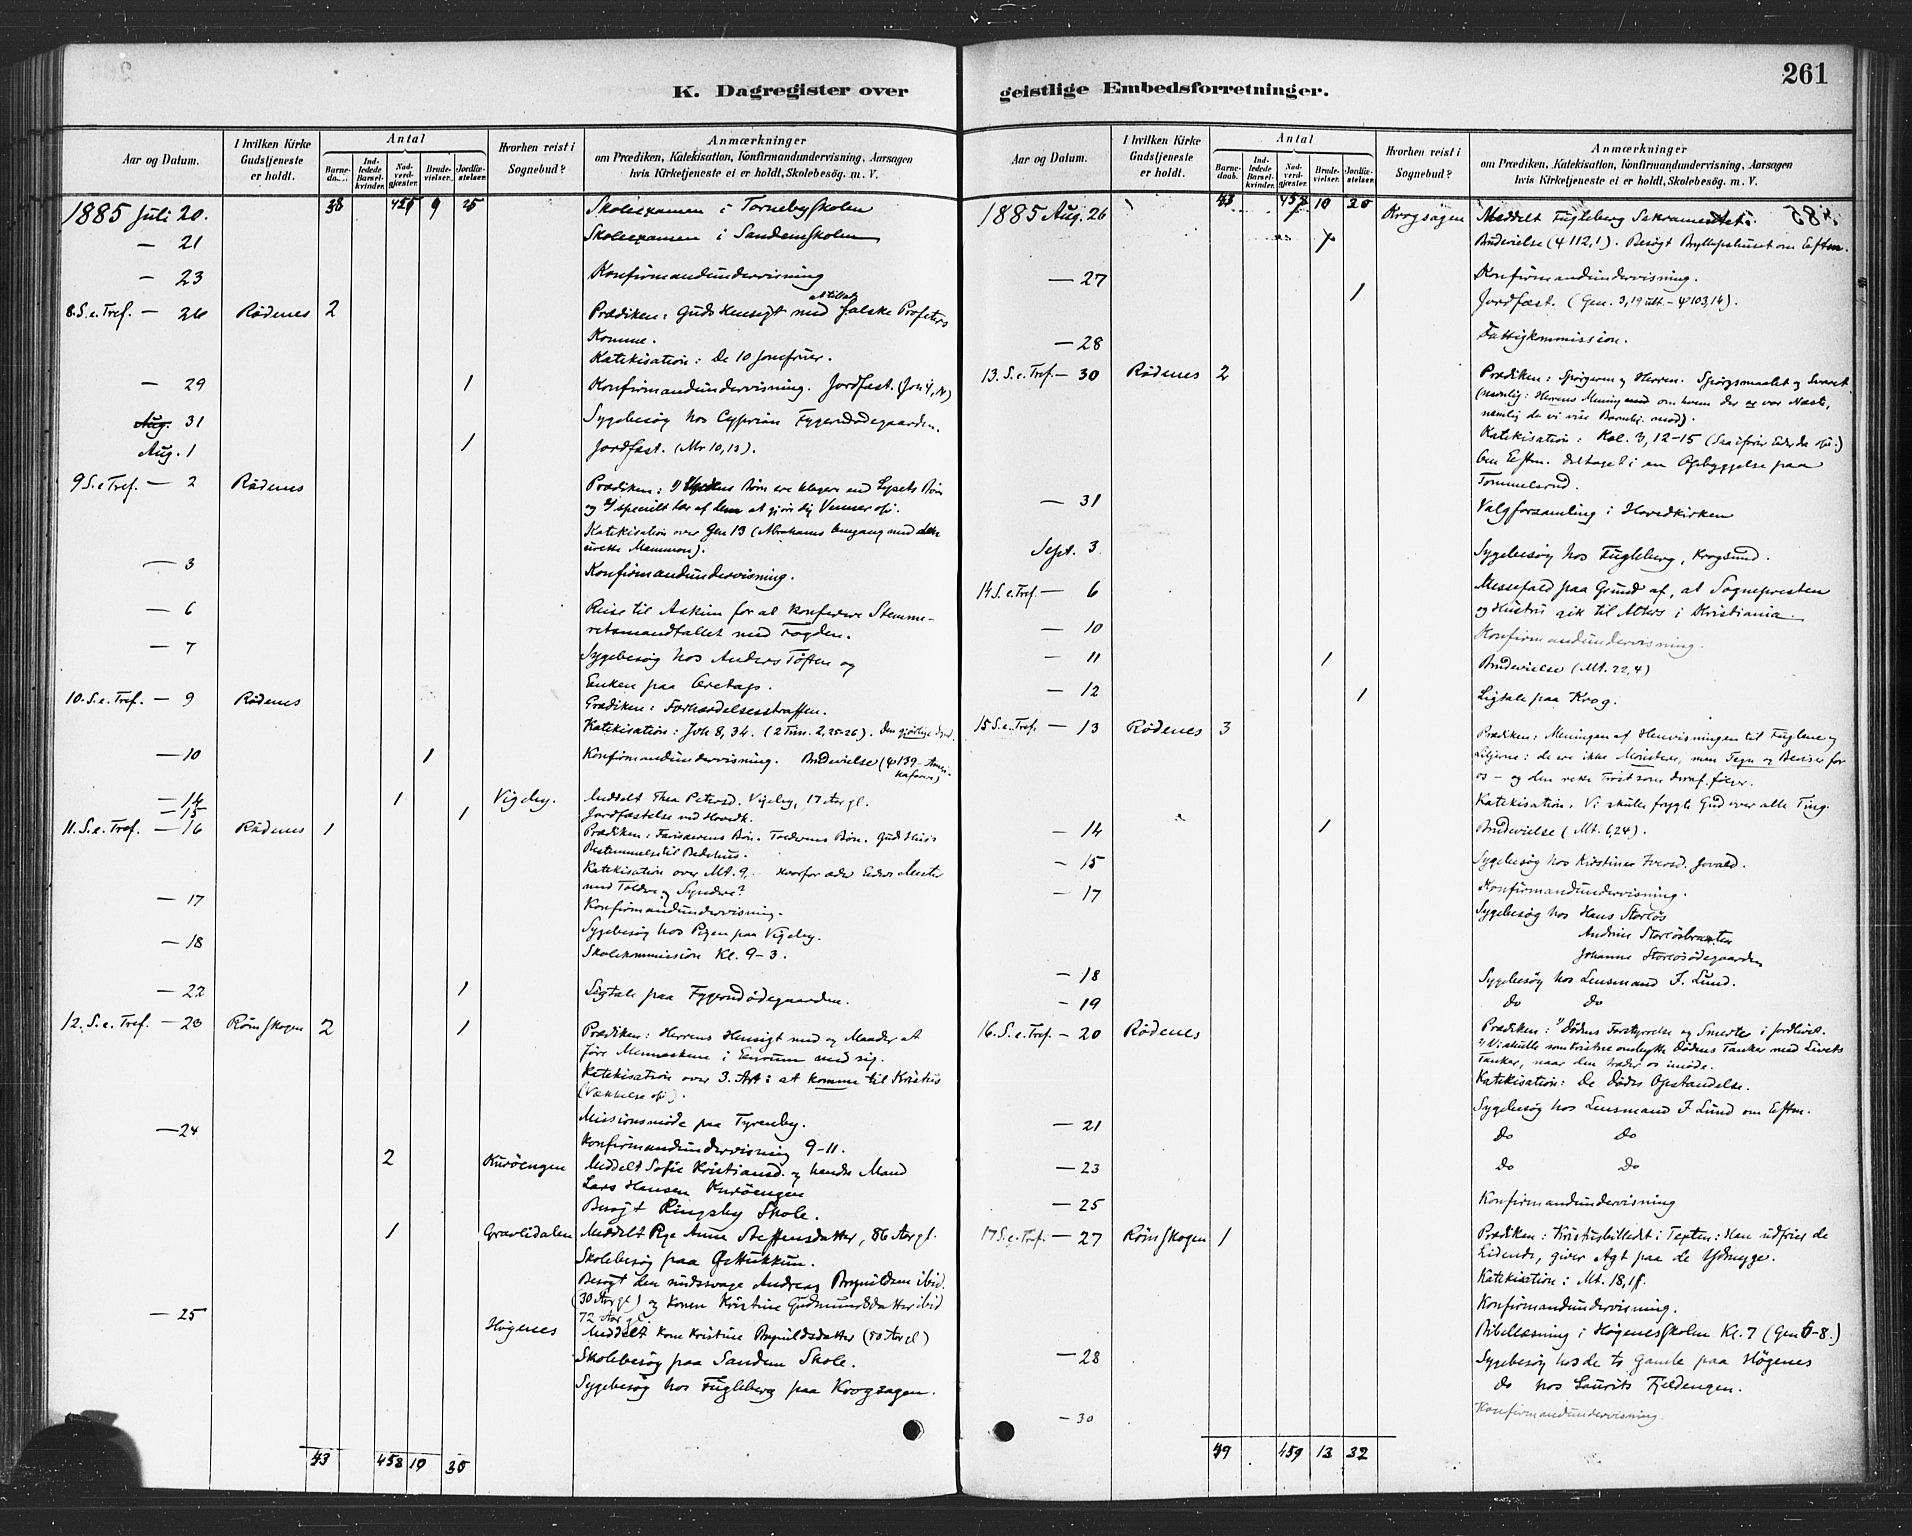 K. Dagregister over
Aar og Datum.
I hvilken Kirke Gudstjeneste er holdt.
Antal
Barne-
Ind-ledede Barsel-kvinder.
Nad-verd-gjester.
Brude-vielser.
Jordfæ-stelser.
Hvorhen reist i Sognebud?
Anmærkninger
om Prædiken, Katekisation, Konfirmandundervisning, Aarsagen
hvis Kirketjeneste ei er holdt, Skolebesøg. m. V.
1885 Juli 20. 38 9 25 Skoleexamen i Tornebyskolen
— 21 Skoleexamen i Sandemskolen
— 23 Konfirmandundervisning
8. S. e. Tref. — 26 Rødenes 2 Prædiken: Guds Hensigt med at tillade falske Profeters
Komme.
Katekisation: De 10 Jomfruer.
— 29 1 Konfirmandundervisning. Jordfæst.
Aug. 31 Sygebesøg hos Cyprian Fygerødegaarden.
Aug. 1 1 Jordfæst. (Mr 10,13).
9 S. e Tref. — 2 Rødenes Prædiken: 1) Børn ere klogere end Lysets Børn
og 2) specielt bør af dem at gjøre sig Venner osv.
Katekisation over Gen 13 (Abrahams Omgang med den
urette Mammon).
— 3 Konfirmandundervisning.
— 6 Reise til Askim for at konferere Stemme-
retsmandtallet med Fogden.
— 7 Sygebesøg hos Anders Tøften og
Enken paa
10. S. e. Tref. — 9 Rødenes Prædiken: Forhærdelsesstraffen.
Katekisation: Joh 8, 34. (2 Tim. 2, 25-26).
— 10 1 Konfirmandundervisning. Brudevielse (ψ 139
— 14 1 Vigeby. Meddelt Thea Petersd. Vigeby, 17 Aar gl.
— 15 1 Jordfæstelse ved Hovedk.
11. S. e. Tref. — 16 Rødenes 1 Prædiken: Farisæerens Bøn. Tolderens Bøn. Guds Huses
Bestemmelse til Bedehus.
Katekisation over Mt. 9, Hvorfor æder Eders Mester
med Toldere og Syndere?
— 17 Konfirmandundervisning.
Sygebesøg hos Pigen paa Vigeby.
— 18 Skolekommission Kl. 9-3.
— 22 1 Ligtale paa Fygerødegaarden.
12. S. e. Tref. — 23 Rømskogen 2 1 Prædiken: Herrens Hensigt med og Maader at
føre Menneskene i Enrum med sig.
Katekisation over 3. Art: at komme til Kristus
(Vækkelse osv.).
Missionsmøde paa Tyreneby.
— 24 Konfirmandundervisning 9-11.
2 Kurøengen Meddelt Sofie Kristiansd. og hendes Mand
Lars Hansen Kurøengen
Besøgt Ringsby Skole.
1 Gravlidalen Meddelt Pige Anne Steffensdatter, 86 Aar gl.
Skolebesøg paa
Besøgt den Andreas Brynildsen ibid.
(30 Aar gl) og Konen Kristine Gudmundsdatter ibid
72 Aar gl.
— 25 Høgenes Meddelt Kone Kristine Brynildsdatter (50 Aar gl)
Skolebesøg paa Sandem Skole.
Sygebesøg hos Fugleberg paa Krogsagen.
43 458 10 30
geistlige Embedsforretninger.
261
Aar og Datum.
I hvilken Kirke Gudstjeneste er holdt.
Antal
Barne-daab.
Ind-ledede Barsel-kvinder.
Nad-verd-gjester.
Brude-vielser.
Jordfæ-stelser.
Hvorhen reist i Sognebud?
Anmærkninger
om Prædiken, Katekisation, Konfirmandundervisning, Aarsagen
hvis Kirketjeneste ei er holdt, Skolebesøg. m. V.
1885 Aug. 26 43 458 10 Krogsagen Meddelt Fugleberg Sakramentet.
Brudevielse (ψ 112,1). Besøgt Bryllupshuset om Eftm.
— 27 Konfirmandundervisning.
1 Jordfæst. (Gen. 3,19 ult. - ψ 103,14).
— 28 Fattigkommission.
13. S. e. Tref. — 30 Rødenes 2 Prædiken: Spørgeren og Herren. Spørgsmaalet og Svaret
(nemlig: Herrens Mening med om hvem der er vor Næste,
nemlig de vi vise Barmhj. mod).
Katekisation: Kol. 3, 12-15 (Saa ifører Eder da osv.)
Om Eftm. deltaget i en Opbyggelse paa
Tommelsrud.
— 31 Valgforsamling i Hovedkirken
Sept. 3 Sygebesøg hos Fugleberg, Krogsund.
14 S. e. Tref — 6 Messefald paa Grund af, at Sognepresten
og Hustru gik til Alters i Kristiania
— 10 Konfirmandundervisning.
— 11 1 Brudevielse (Mt. 22,4)
— 12 1 Ligtale paa Krog.
15 S. e. Tref. — 13 Rødenes 3 Prædiken: Meningen af Henvisningen til Fuglene og
Liljerne: de ere ikke Mønstere, men Tegn og Beviser for
os - og den rette Trøst som deraf følger.
Katekisation. Vi skulle frygte Gud over alle Ting.
— 14 1 Brudevielse (Mt. 6,24).
— 15 Sygebesøg hos Kirstine Iversd.
— 17 Konfirmandundervisning.
Sygebesøg hos Hans Storløs
Andrine Storløsbraaten
Johanne Storløsødegaarden
— 18 Sygebesøg hos Lensmand F. Lund.
— 19 do do
16. S. e. Tref — 20 Rødenes Prædiken: 1) Dødens Forstyrrelse og Smerte i Jordlivet.
2) Vi skulle som Kristne ombytte Dødens Tanker med Livets
Tanker, naar den træder os imøde.
Katekisation: De Dødes Opstandelse.
Sygebesøg hos Lensmand F Lund om Eftm.
— 21 do do
— 23 do do
— 25 Konfirmandundervisning
17 S. e. Tref. — 27 Rømskogen 1 Prædiken: Kristusbilledet i Texten: Han udfrier de
Lidende, giver Agt paa de Ydmyge.
Katekisation: Mt. 18,1ff.
Konfirmandundervisning.
Bibellæsning i Høgenesskolen Kl. 7 (Gen 6-8.)
— 28 Sygebesøg hos de to Gamle paa Høgenes
do hos Laurits Fjeldengen.
— 30 Konfirmandundervisning.
49 459 13 32